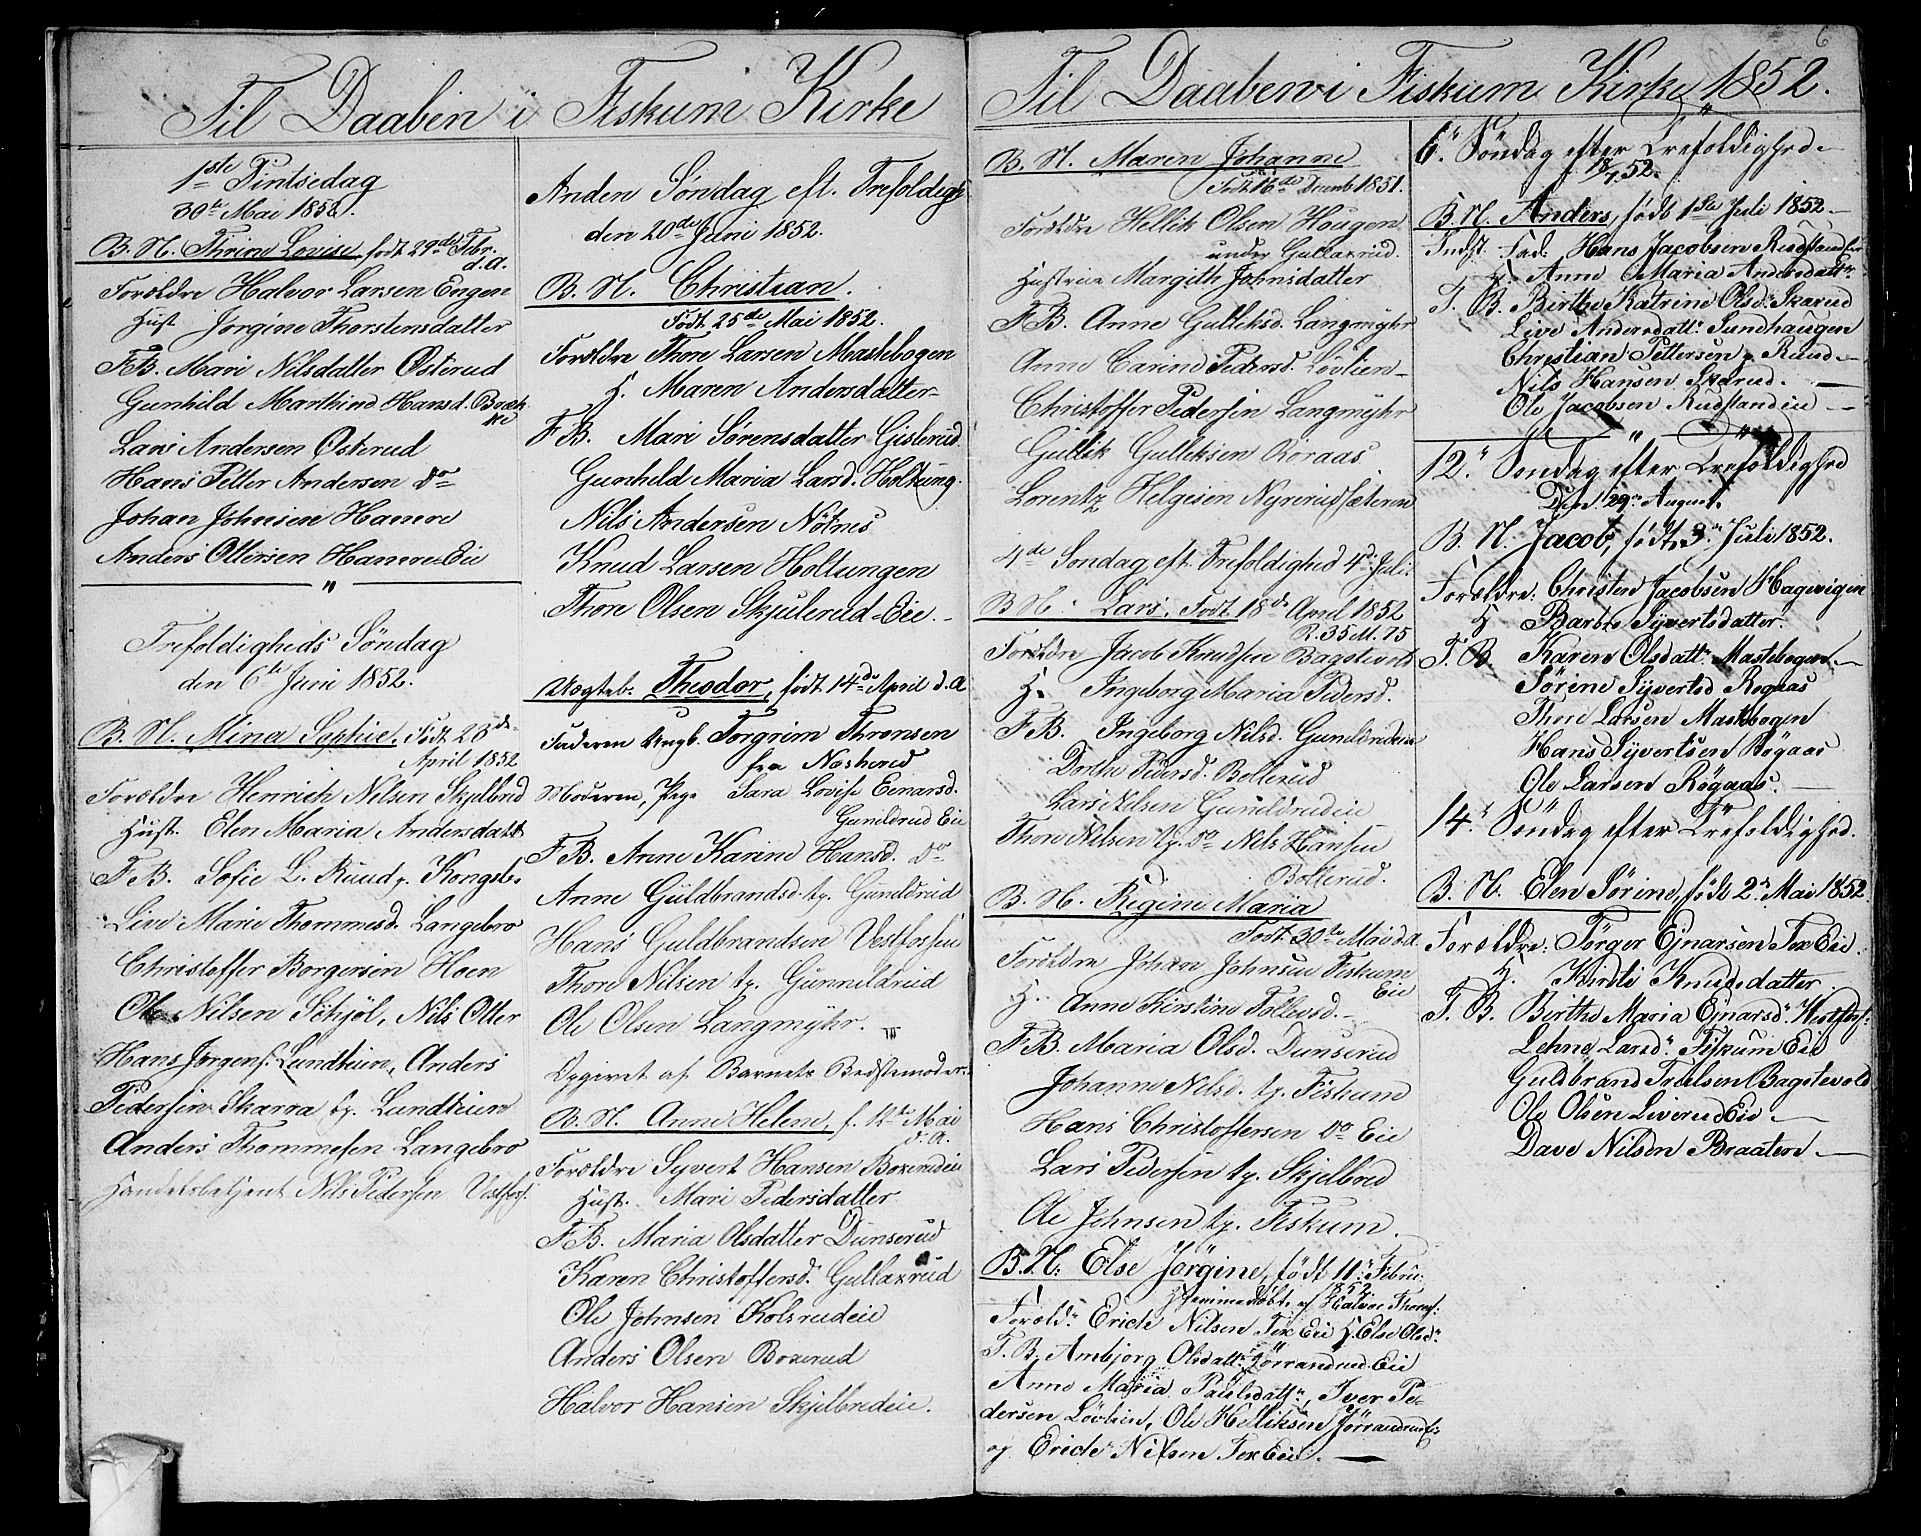 Til Daaben i Fiskum Kirke
1ste Pintsedag
30te Mai 1852.
B. N. Thrine Lovise, født 29de Febr.
d. A.
Forældre Halvor Larsen Engen
Hust Jorgine Thorstensdatter
F. B. Mari Nilsdatter Østerud
Gunhild Marthine Hansd. Bræk
ke
Lars Andersen Østerud
Hans Petter Andersen do
Johan Johnsen Hamre
Anders Ottersen Hamre Eie
"
Trefoldigheds Søndag
den 6te Juni 1852.
B. N. Mina Sophie. Født 28de
April 1852
Forældre Henrich Nilsen Skjelbred
Hust. Elen Maria Andersdatt
F. B. Sofie L. Ruud p. Kongsb.
Live Marie Thommesd. Langebro
Christoffer Borgersen Hoen
Ole Nilsen Sihjöl, Nils Otter
Hans Jørgens. Lundteien, Anders
Pedersen Skarra tj. Lundteien
Anders Thommesen Langebro
Handelsbetjent Nils Pedersen Vestfos.
Anden Søndag eft. Trefoldigh
den 20de Juni 1852.
B. N. Christian.
Født 25de Mai 1852.
Forældre Thore Larsen Mastebogen
H. Maren Andersdatter
F. B. Mari Sørensdatter Gislerud
Gunhild Maria Larsd. Holtung.
Nils Andersen Nøtnes
Knud Larsen Holtungen
Thore Olsen Skjulerud-Eie.
Uægteb. Theodor, født 14de April d. A
Faderen Ungk. Torgrim Thronsen
fra Næsherud
Moderen, Pige Sara Lovise Einarsd.
Gunildrud Eie
F. B. Anne Karine Hansd. do
Anne Guldbrandsd. tj. Gunildrud
Hans Guldbrandsen Vestfossen
Thore Nilsen tj. Gunneldrud
Ole Olsen Langmyhr.
Opgivet af Barnets Bedstemoder.
B. N. Anne Helene, f. 12te Mai
d. A.
Forældre Syvert Hansen Boxerudeie
Hust. Mari Pedersdatter
F. B. Maria Olsdatter Dunserud
Karen Christoffersd. Gullaxrud
Ole Johnsen Kolsrudeie
Anders Olsen Boxerud
Halvor Hansen Skjelbredeie.
6
Til Daaben i Fiskum Kirke 1852.
B. N. Maren Johanne
Født 16de Decmb 1851.
Forældre Hellik Olsen Hougen
under Gullaxrud.
Hustrue Margith Johnsdatter
F. B. Anne Gulliksd. Langmyhr
Anne Carine Pedersd. Løvlien
Christoffer Pedersen Langmyhr
Gullik Gulliksen Röraas
Lorentz Helgesen Nyrerudsæteren
4de Søndag eft. Trefoldighed 4de Juli.
B. N. Lars. Født 18de April 1852
R. 35 M. 75
Forældre Jacob Knudsen Bagstevold
H. Ingeborg Maria Pedersd.
F. B. Ingeborg Nilsd. Gunildrudeie
Dorthe Pedersd. Bollerud
Lars Nilsen Gunildrudeie
Thore Nilsen tj. do Nils Hansen
Bollerud.
B. N. Regine Maria
Født 30te Mai d. A.
Forældre Johan Johnsen Fiskum
Eie
H. Anne Kirstine Tollevsd.
F. B. Maria Olsd. Dunserud
Johanne Nilsd. tj. Fiskum
Hans Christoffersen do Eie
Lars Pedersen tj. Skjelbred
Ole Johnsen tj. Fiskum.
B. N: Else Jörgine, født 11te Febru.
1852
Hjemmedöbt af Halvor Thores.
Foræld: Erich Nilsen Tex Eie H. Else Olsd:
F. B. Ambjorg Olsdatt: Jörrandrud Eie
Anne Maria Paulsdatt:, Iver Pe-
dersen Lövlien, Ole Helliksen Jørrandrud Eie
og Erich Nilsen Tex Eie.
"
6. Søndag efter Trefoldighed
18/7 52.
B. N. Anders, født 1ste Juli 1852
Indst. Fad. Hans Jacobsen Rudstandeie
H. Anne Maria Andersdatt:
F. B. Birthe Katrine Olsd: Skarud
Live Andersdatt: Sundhaugen
Christian Pettersen p. Ruud
Nils Hansen Skarud.
Ole Jacobsen Rudstandeie
"
12. Søndag efter Trefoldighed
Den 29de August.
B. N. Jacob, født 3. Juli 1852.
Forældre: Christen Jacobsen Hagevigen
H Barbro Syvertsdatter.
F. B. Karen Olsdatt: Mastebogen
Sørine Syvertsd Røgaas
Thore Larsen Mastebogen
Hans Syvertsen Røgaas
Ole Larsen Røgaas.
14. Søndag efter Trefoldighed.
B. N. Elen Sørine, født 2. Mai 1852
Forældre: Törger Ejnarsen Tex Eie.
H. Kirsti Knudsdatter
F. B. Birthe Maria Ejnarsd: Westfos:
Lehne Larsd: Fiskum Eie
Guldbrand Truelsen Bagstevold
Ole Olsen Liverud Eie
Dave Nilsen Braaten